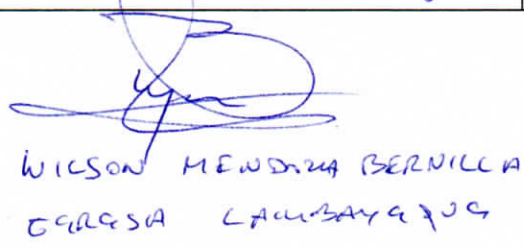 WILSON MENDOZA BERNILLA
GERESA LAMBAYEQUE